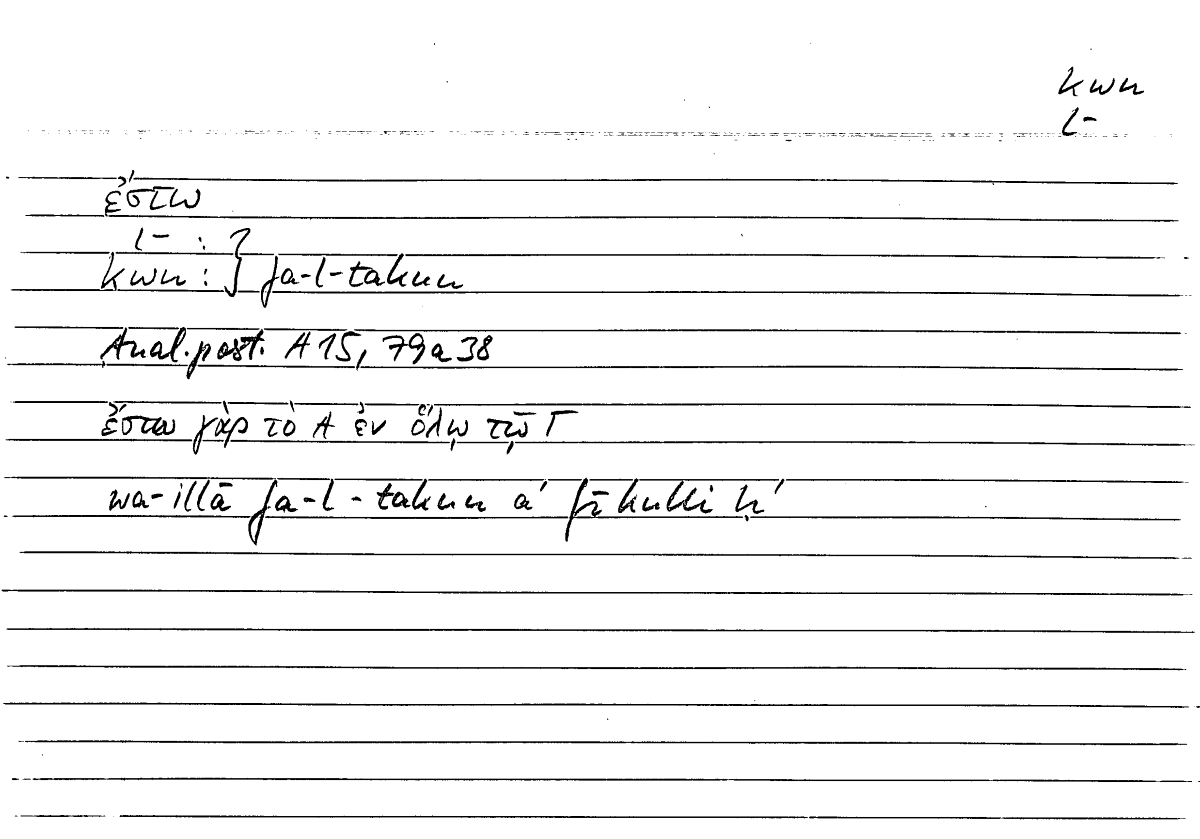 kwn
l-
ἔστω
l- : }
kwn : } fa-l-takun
Anal. post. A 15, 79a38
ἔστω γὰρ τὸ A ἐν ὅλῳ τῷ Γ
wa-illā fa-l-takun a' fī kulli ḥ'